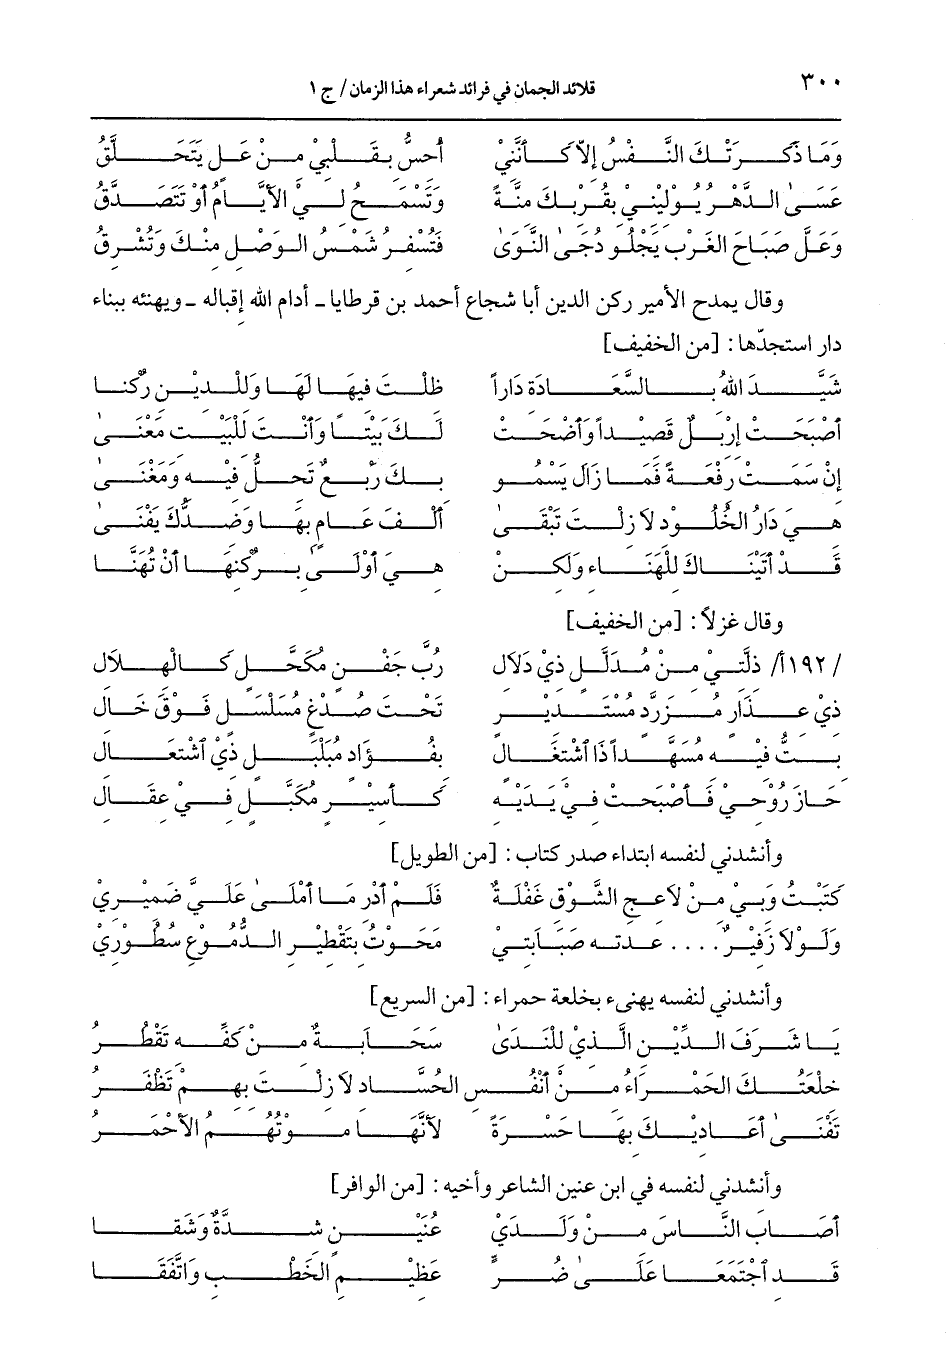 ٣٠٠ قلائد الجمان في فرائد شعراء هذا الزمان/ ج ١
وَمَا ذَكَرَتْكَ النَّفْسُ إِلاّ كَأَنَّنِيْ أُحسُّ بِقَلْبِيْ مِنْ عَلٍ يَتَحَلَّقُ
عَسَىٰ الدَّهْرُ يُوْلِيْنِيْ بِقُرْبِكَ مِنَّةً وَتَسْمَحُ لِيْ الأَيَّامُ أَوْ تَتَصَدَّقُ
وَعَلَّ صَبَاحَ القُرْبِ يَجْلُوْ دُجَىٰ النَّوَىٰ فَتُسْفِرُ شَمْسُ الوَصْلِ مِنْكَ وَتُشْرِقُ
وقال يمدح الأمير ركن الدين أبا شجاع أحمد بن قرطايا ـ أدام الله إقباله ـ ويهنئه ببناء
دار استجدّها: [من الخفيف]
شَيَّدَ اللهُ بِالسَّعَادَةِ دَاراً ظَلْتَ فِيْهَا لَهَا وَلِلْدِيْنِ رُكْنا
أَصْبَحَتْ إِرْبِلٌ قَصِيْداً وَأَضْحَتْ لَكَ بَيْتاً وَأَنْتَ لِلْبَيْتِ مَعْنَىٰ
إِنْ سَمَتْ رِفْعَةً فَمَا زَالَ يَسْمُو بِكَ رَبْعٌ تَحِلُّ فِيْهِ وَمَغْنَىٰ
هِيَ دَارُ الخُلُوْدِ لاَ زِلْتَ تَبْقَىٰ أَلْفَ عَامٍ بِهَا وَضِدُّكَ يَفْنَىٰ
قَدْ أَتَيْنَاكَ لِلْهَنَاءِ وَلَكِنْ هِيَ أَوْلَىٰ بِرُكْنِهَا أَنْ تُهَنَّا
وقال غزلاً: [من الخفيف]
/١٩٢أ/ ذِلَّتِيْ مِنْ مُدَلَّلٍ ذِيْ دَلاَلِ رُبَّ جَفْنٍ مُكَحَّلٍ كَالْهِلاَلِ
ذِيْ عِذَارٍ مُزَرَّدٍ مُسْتَدِيْرٍ تَحْتَ صُدْغٍ مُسَلْسَلٍ فَوْقَ خَالِ
بِتُّ فِيْهِ مُسَهَّداً ذَا ٱشْتِغَالٍ بِفُؤَادٍ مُبَلْبَلٍ ذِيْ ٱشْتِعَالِ
حَازَ رُوْحِيْ فَأَصْبَحَتْ فِيْ يَدَيْهِ كَأَسِيْرٍ مُكَبَّلٍ فِيْ عِقَالِ
وأنشدني لنفسه ابتداء صدر كتاب: [من الطويل]
كَتَبْتُ وَبِيْ مِنْ لاَعِجِ الشَّوْقِ غَفْلَةٌ فَلَمْ أَدْرِ مَا أَمْلَىٰ عَلَيَّ ضَمِيْرِيْ
وَلَوْلاَ زَفِيْرٌ.... عدته صَبَابَتِيْ مَحَوْتُ بِتَقْطِيْرِ الدُّمُوْعِ سُطُوْرِيْ
وأنشدني لنفسه يهنىء بخلعة حمراء: [من السريع]
يَا شَرَفَ الدِّيْنِ الَّذِيْ لِلْنَدَىٰ سَحَابَةٌ مِنْ كَفِّهِ تَقْطُرُ
خِلْعَتُكَ الحَمْرَاءُ مِنْ أَنْفُسِ الحُسَّادِ لاَ زِلْتَ بِهِمْ تَظْفَرُ
تَفْنَىٰ أَعَادِيْكَ بِهَا حَسْرَةً لأَنَّهَا مَوْتُهُمُ الأَحْمَرُ
وأنشدني لنفسه في ابن عنين الشاعر وأخيه: [من الوافر]
أَصَابَ النَّاسَ مِنْ وَلَدَيْ عُنَيْنٍ شِدَّةٌ وَشَقَا
قَدِ ٱجْتَمَعَا عَلَىٰ ضُرٍّ عَظِيْمِ الخَطْبِ وَاتَّفَقَا